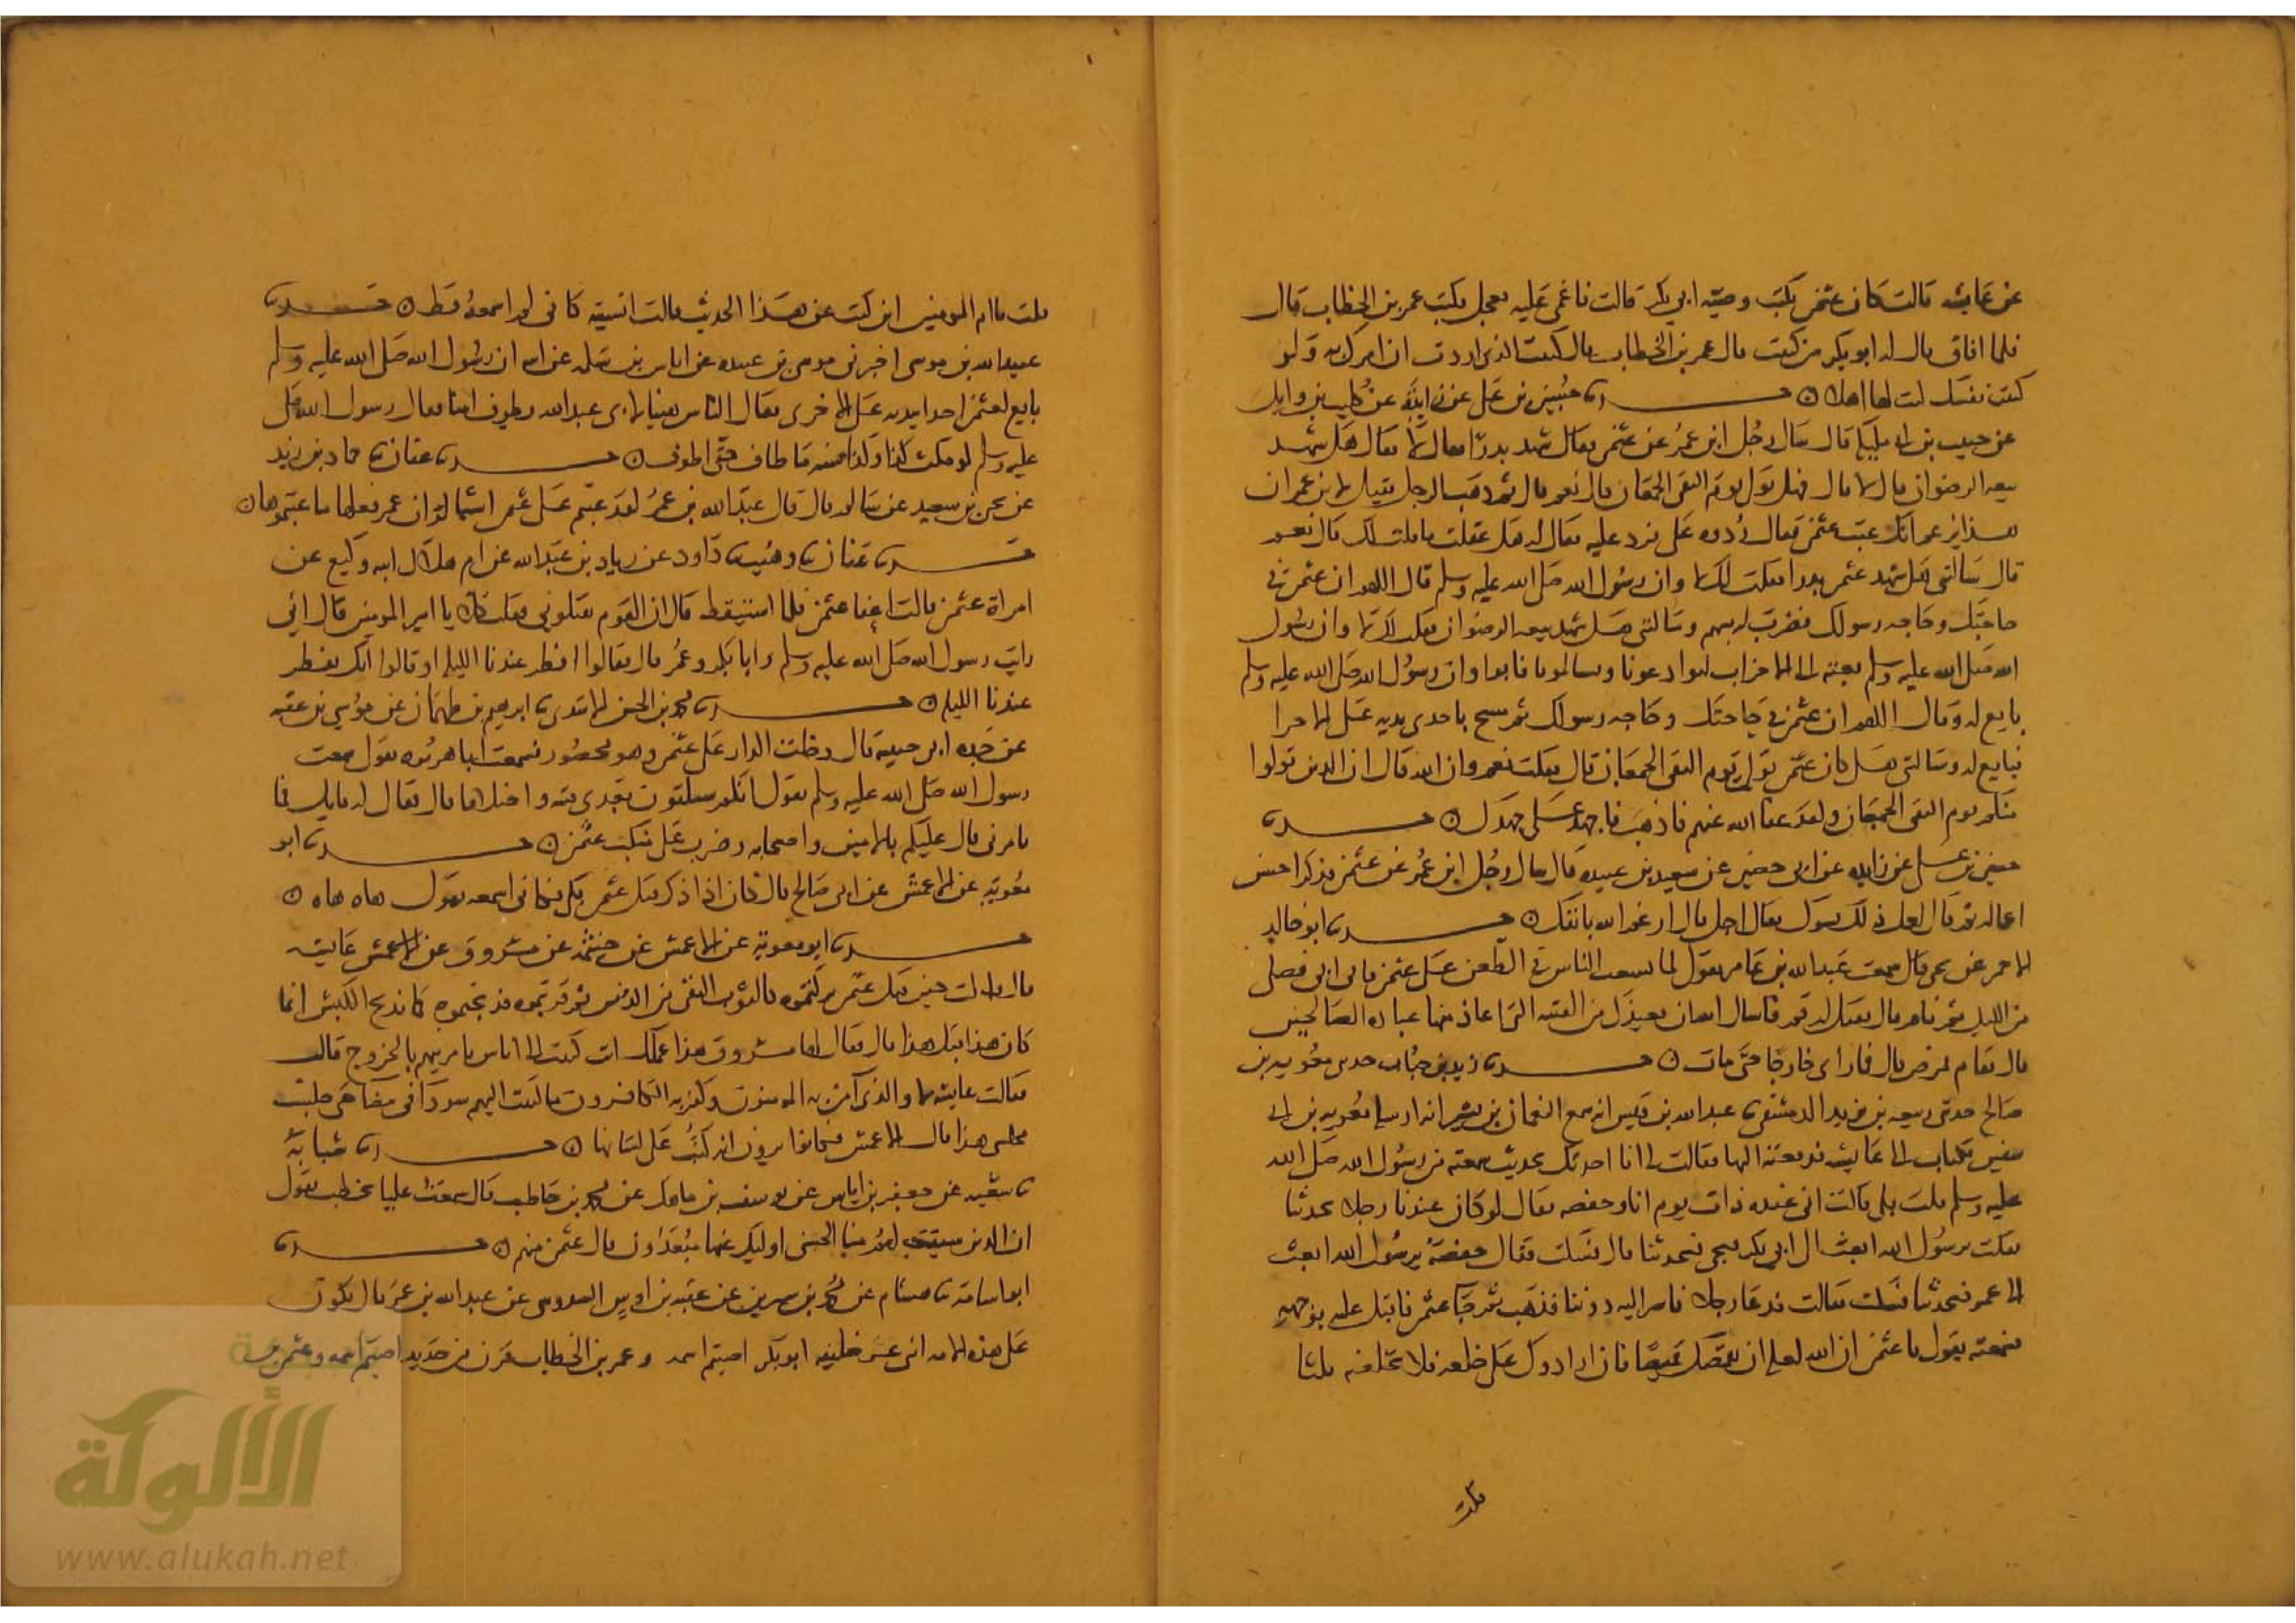 عن عايشه قالت كان عثمن يكتب وصية ابي بكر قالت فاغمي عليه فعجل وكتب عمر بن الخطاب قال
فلما افاق قال له ابو بكر من كتبت قال عمر بن الخطاب قال كتبت الذي اردت ان امرك به ولو
كتبت نفسك كنت لها اهلا ن حدثنا حسين بن علي عن زايدة عن كليب بن وايل
عن حبيب بن ابي مليكة قال سال رجل ابن عمر عن عثمن فقال شهد بدرا فقال لا فقال هل شهد
بيعه الرضوان قال لا قال فهل تولى يوم التقى الجمعان قال نعم قال ثم ذهب الرجل فقيل لابن عمر ان
هذا يزعم انك عبت عثمن فقال ردوه علي فرد عليه فقال له هل عقلت ما قلت لك قال نعم
قال سالتني هل شهد عثمن بدرا فقلت لك لا وان رسول الله صلى الله عليه وسلم قال اللهم ان عثمن في
حاجتك وحاجه رسولك فضرب له بسهم وسالتني هل شهد بيعه الرضوان فقلت لك لا وان رسول
الله صلى الله عليه وسلم بعثه الى الاحزاب ليوادعونا ويسالمونا فابوا وان رسول الله صلى الله عليه وسلم
بايع له وقال اللهم ان عثمن في حاجتك وحاجه رسولك ثم مسح باحدى يديه على الاخرا
فبايع له وسالتني هل كان عثمن تولى يوم التقى الجمعان قال فقلت نعم وان الله قال ان الذين تولوا
منكم يوم التقى الجمعان ولقد عفا الله عنهم فاذهب فاجهد علي جهدك ن حدثنا
حسين بن علي عن زايده عن ابي حصين عن سعد بن عبيده قال سال رجل ابن عمر عن عثمن فذكر احسن
اعماله ثم قال لعل ذلك يسوك فقال اجل قال ارغم الله بانفك ن حدثنا ابو خالد
الاحمر عن يحيى قال سمعت عبد الله بن عامر يقول لما تشعب الناس في الطعن على عثمن قام ابي فصلى
من الليل ثم نام قال فقيل له قم فاسال الله ان يعيذك من الفتنه التي اعاذ منها عباده الصالحين
قال فقام فمرض قال فما راي خارجا حتى مات ن حدثنا زيد بن حباب حدثني معويه بن
صالح حدثني ربيعه بن يزيد الدمشقي نا عبد الله بن قيس انه سمع النعمان بن بشير انه ارسله معويه بن ابي
سفين بكتاب الى عايشه فدفعته اليها فقالت لي الا احدثك بحديث سمعته من رسول الله صلى الله
عليه وسلم قلت بلى قالت اني عنده ذات يوم انا وحفصه فقال لو كان عندنا رجل يحدثنا
فقلت يرسول الله ابعث الى ابي بكر فيجي فيحدثنا قال فسكت فقال حفصة يرسول الله ابعث
الى عمر فيحدثنا فسكت فقالت فدعا رجلا فاسر اليه دوننا فذهب ثم جا عثمن فاقبل عليه بوجهه
فسمعته يقول يا عثمن ان الله لعله ان يقمصك قميصا فان ارادوك على خلعه فلا تخلعه ثلاثا
قلت
قلت يا ام المومنين اين كنت عن هذا الحديث فقالت انسيته كاني لم اسمعه قط ن حدثنا
عبيد الله بن موسى اخبرني موسى بن عبيده عن اياس بن سلمه عن ابيه ان رسول الله صلى الله عليه وسلم
بايع لعثمن احدا يديه على الاخرى فقال الناس هنيا لابي عبد الله يطوف امنا فقال رسول الله صلى
عليه وسلم لو مكث كذا وكذا سنه ما طاف حتى اطوف ن حدثنا عفان نا حماد بن زيد
عن يحيى بن سعيد عن سالم قال قال عبد الله بن عمر لقد عبتم على عثمن اشيا لو ان عمر فعلها ما عبتموها ن
حدثنا عفان نا وهيب نا داود عن زياد بن عبد الله عن ام هلال ابنه وكيع عن
امراة عثمن قالت اغفا عثمن فلما استيقظ قال ان القوم يقتلونني فقلت كلا يا امير المومنين قال اني
رايت رسول الله صلى الله عليه وسلم وابا بكر وعمر قال فقالوا افطر عندنا الليلة او قالوا انك تفطر
عندنا الليلة ن حدثنا محمد بن الحسن الاسدي نا ابرهيم بن طهمان عن موسى بن عقبه
عن جده ابي حبيبة قال دخلت الدار على عثمن وهو محصور فسمعت ابا هريره يقول سمعت
رسول الله صلى الله عليه وسلم يقول انكم ستلقون بعدي فتنه واختلافا قال فقال له قايل فما
تامرني قال عليكم بالامين واصحابه وضرب على منكب عثمن ن حدثنا ابو
معوية عن الاعمش عن ابي صالح قال كان اذا ذكر قتل عثمن بكى فكاني اسمعه يقول هاه هاه ن
حدثنا ابو معوية عن الاعمش عن خيثمة عن مسروق عن الاعمش عايشه
قال قالت حين قتل عثمن تركتموه كالثوب النقي من الدنس ثم قربتموه فذبحتموه كما يذبح الكبش انما
كان هذا قبل هذا قال فقال لها مسروق هذا عملك انت كتبت الى اناس تامريهم بالخروج قال
فقالت عايشه لا والذي آمن به المومنون وكفر به الكافرون ما كتبت اليهم سودا في بيضا حتى جلست
مجلسي هذا قال الاعمش فكانوا يرون انه كتب على لسانها ن حدثنا شبابة
نا شعبه عن جعفر بن اياس عن يوسف بن ماهك عن محمد بن حاطب قال سمعت عليا يخطب يقول
ان الذين سبقت لهم منا الحسنى اوليك عنها مبعدون قال عثمن منهم ن حدثنا
ابو اسامة نا هشام عن محمد بن سيرين عن عقبه بن اوس السدوسي عن عبد الله بن عمر قال يكون
على هذه الامه اثني عشر خليفه ابو بكر اصبتم اسمه وعمر بن الخطاب قرن من حديد اصبتم اسمه وعثمن بن
الألوكة
www.alukah.net